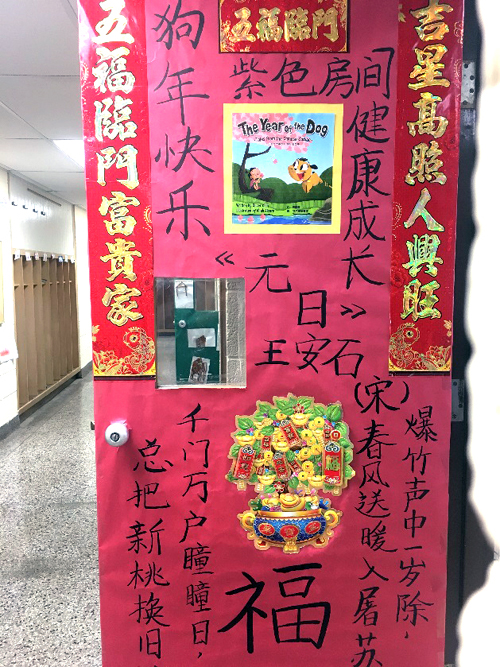 五福臨門
吉星高照人興旺
五福臨門富貴家
狗年快乐
紫色房间
健康成长
The Year of the Dog
《元日》
王安石
(宋)
爆竹声中一岁除,
春风送暖入屠苏
千门万户瞳瞳日,
总把新桃换旧
福